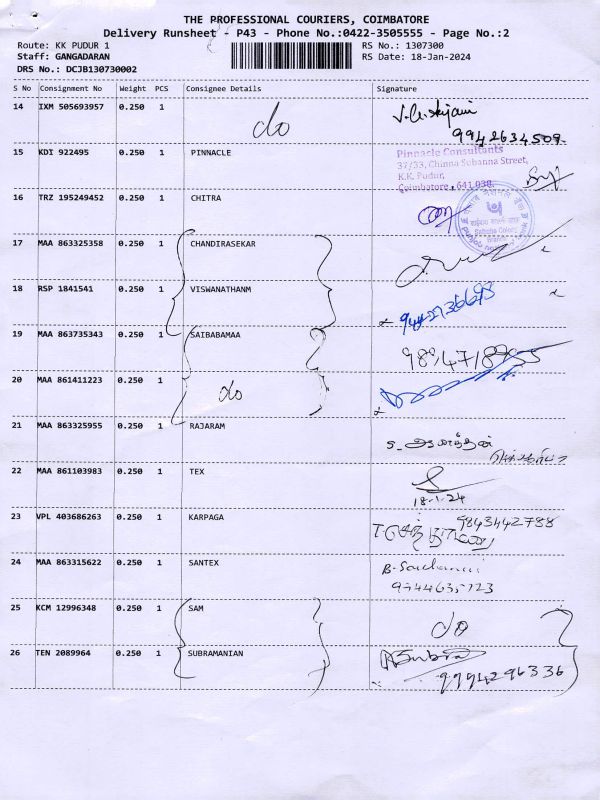 THE PROFESSIONAL COURIERS, COIMBATORE
Delivery Runsheet - P43 - Phone No.:0422-3505555 - Page No.:2
Route: KK PUDUR 1
RS No.: 1307300
Staff: GANGADARAN
RS Date: 18-Jan-2024
DRS No.: DCJB130730002
S No Consignment No Weight PCS Consignee Details Signature
14 IXM 505693957 0.250 1 do
9942634509
15 KDI 922495 0.250 1 PINNACLE
Pinnacle Consultants
37/33, Chinna Subanna Street,
K.K. Pudur,
Coimbatore, 641 038.
16 TRZ 195249452 0.250 1 CHITRA
17 MAA 863325358 0.250 1 CHANDIRASEKAR
18 RSP 1841541 0.250 1 VISWANATHANM
19 MAA 863735343 0.250 1 SAIBABAMAA
20 MAA 861411223 0.250 1 do
21 MAA 863325955 0.250 1 RAJARAM
22 MAA 861103983 0.250 1 TEX
18-1-24
23 VPL 403686263 0.250 1 KARPAGA
9843442788
24 MAA 863315622 0.250 1 SANTEX
25 KCM 12996348 0.250 1 SAM do
26 TEN 2089964 0.250 1 SUBRAMANIAN
9994296336